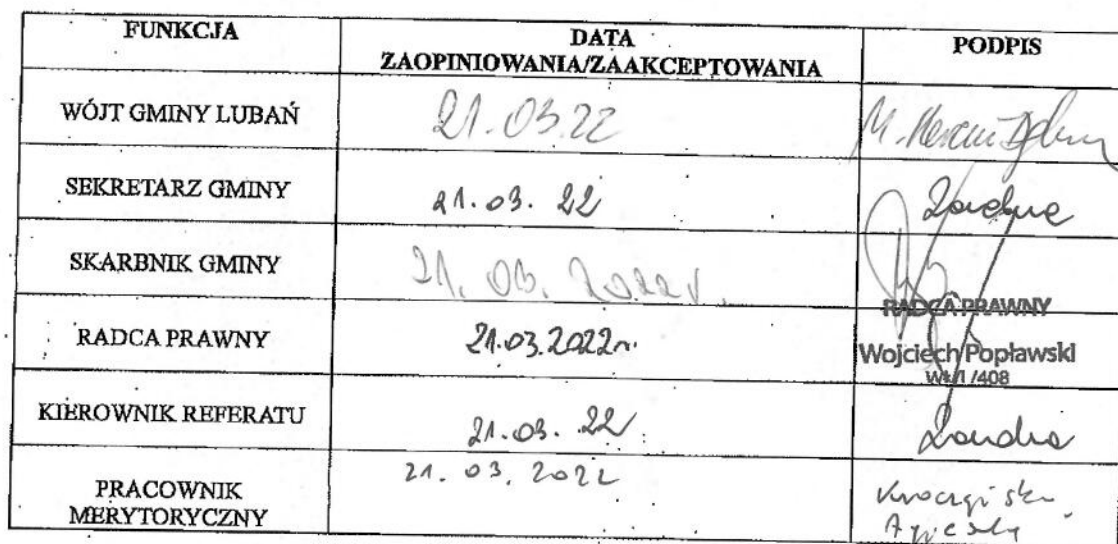 FUNKCJA
DATA
ZAOPINIOWANIA/ZAAKCEPTOWANIA
PODPIS
WÓJT GMINY LUBAŃ
21.03.22
SEKRETARZ GMINY
21.03.22
SKARBNIK GMINY
21.03.2022r.
RADCA PRAWNY
21.03.2022r.
RADCA PRAWNY
Wojciech Popławski
KIEROWNIK REFERATU
21.03.22
PRACOWNIK
MERYTORYCZNY
21.03.2022